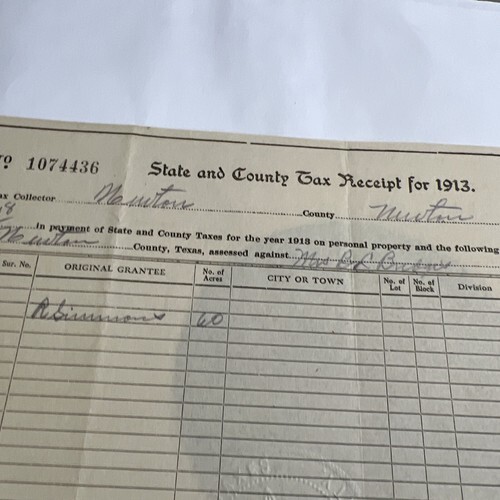 No 1074436 State and County Tax Receipt for 1913.
ax Collector Newton County Newton
8 In payment of State and County Taxes for the year 1913 on personal property and the following
Newton County, Texas, assessed against Mrs
Sur. No. ORIGINAL GRANTEE No. of Acres CITY OR TOWN No. of Lot No. of Block Division
R Simmons 60